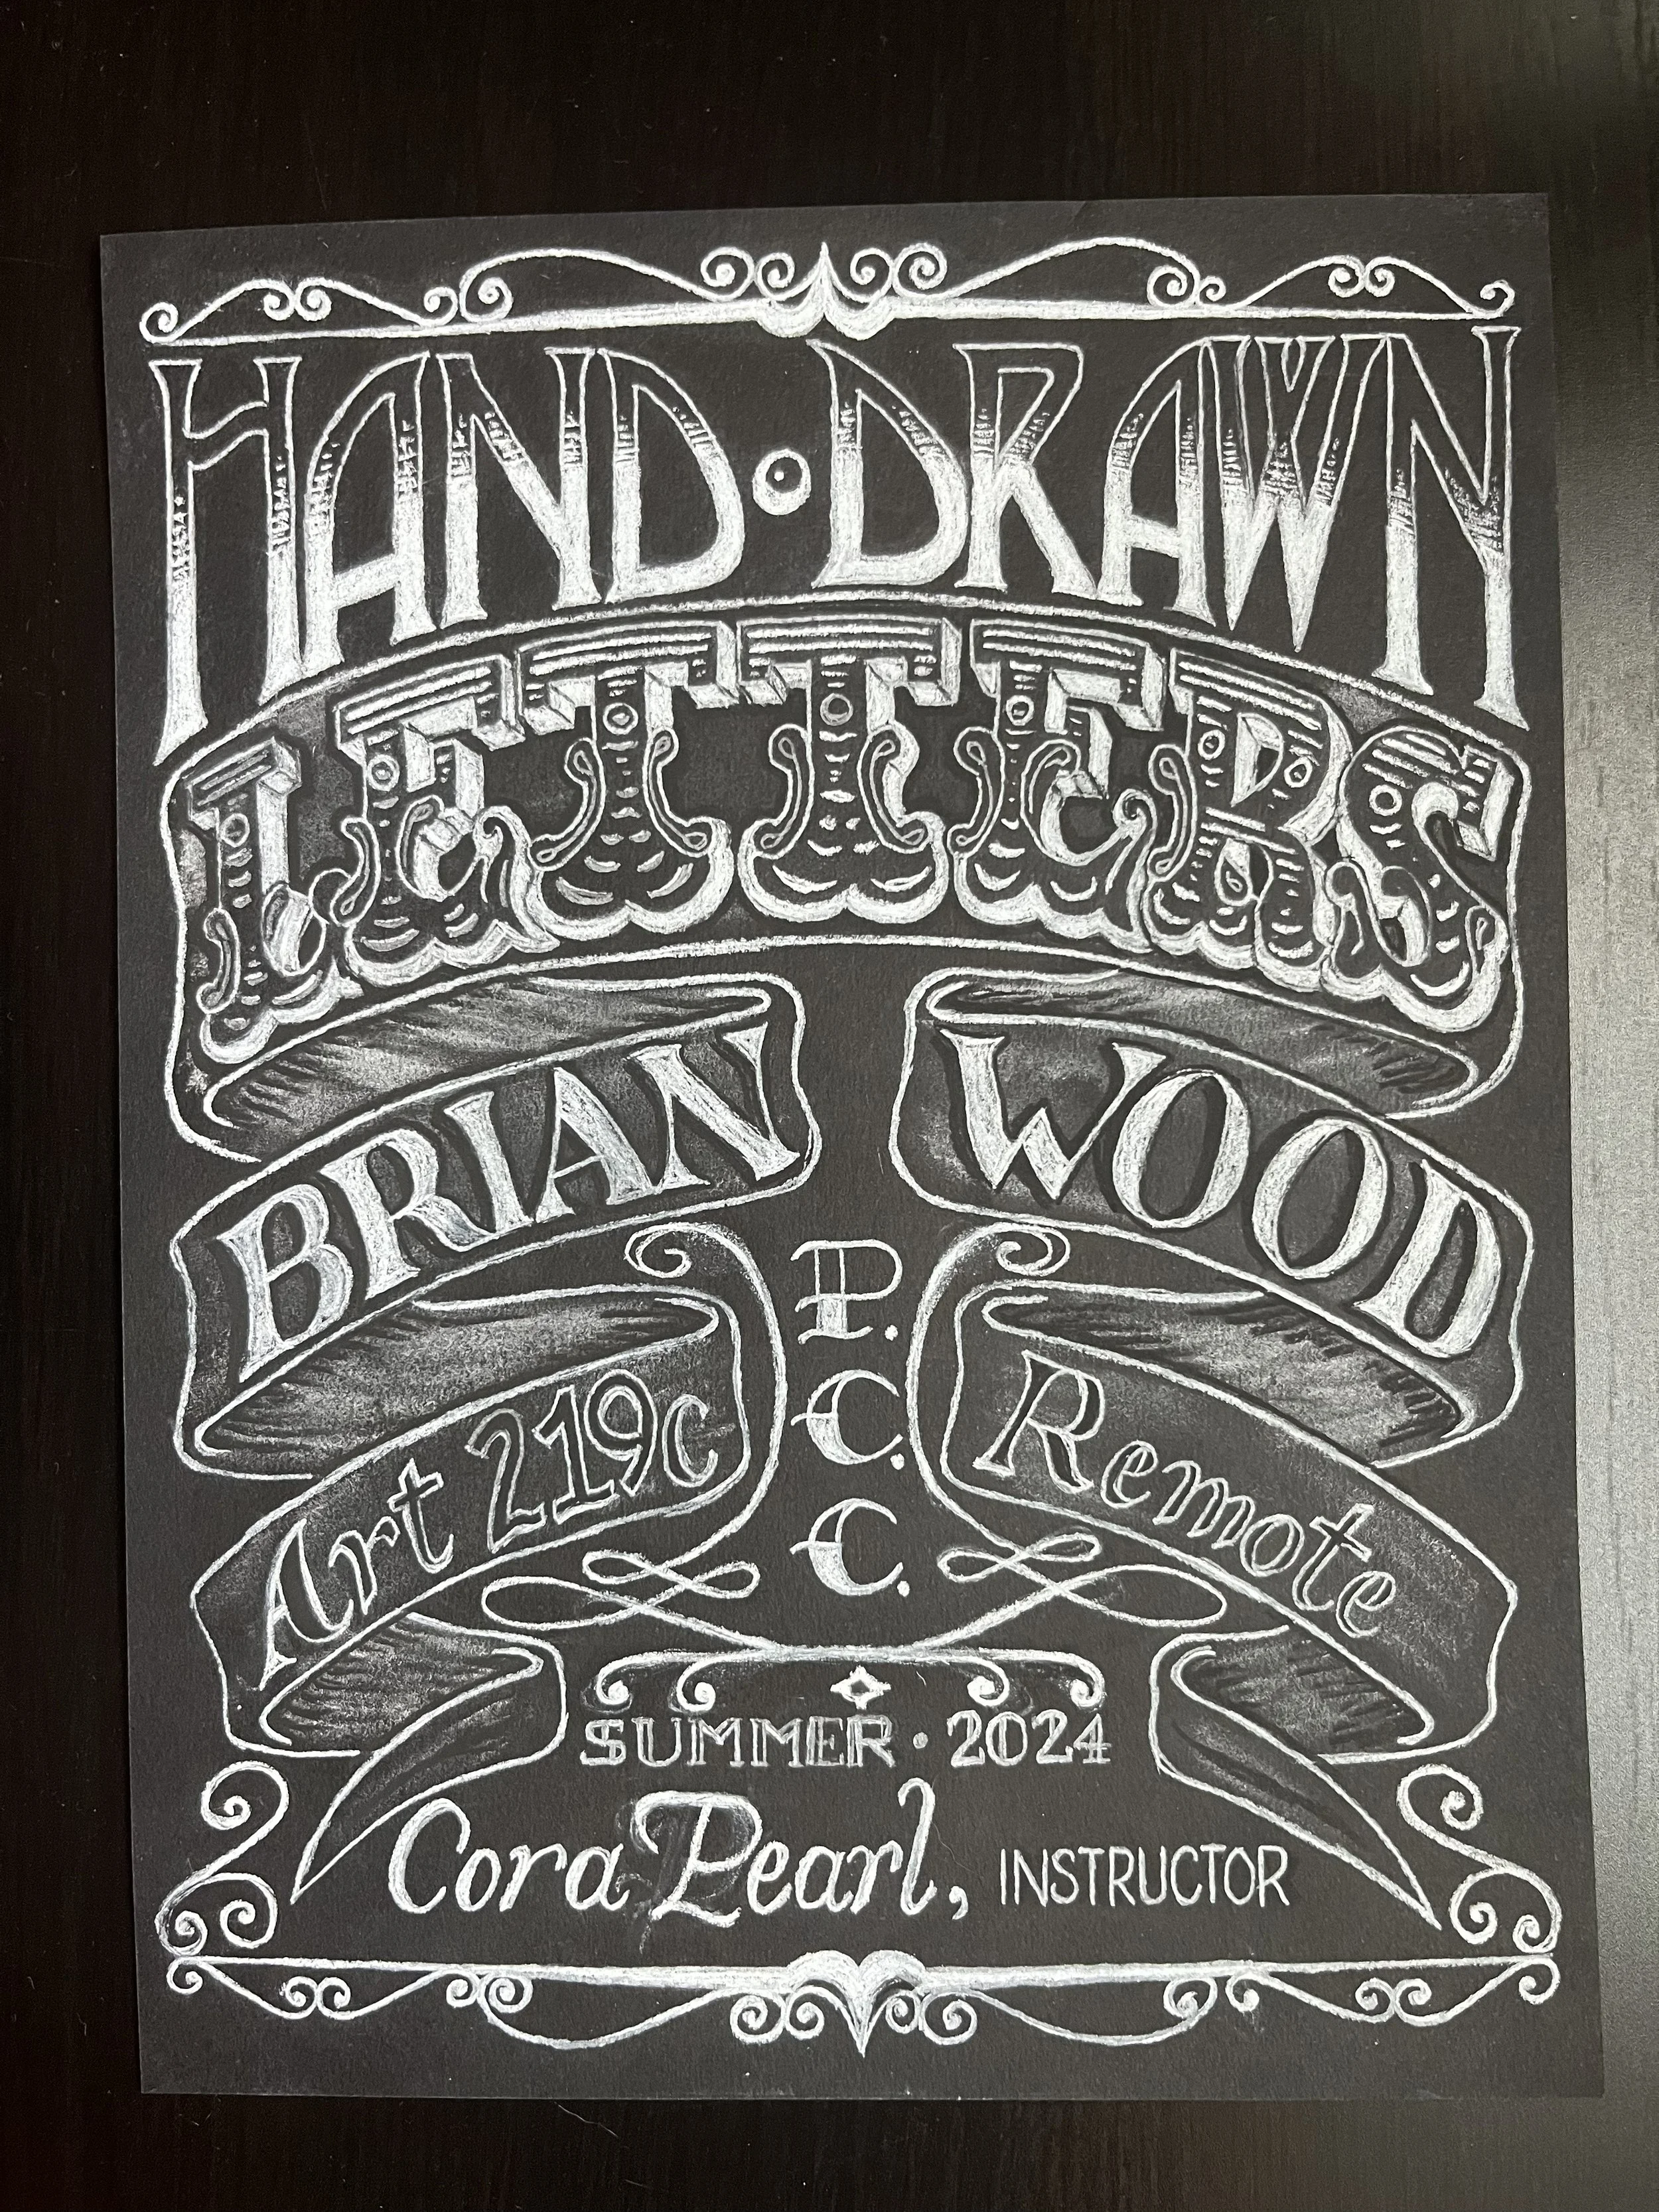 HAND · DRAWN
LETTERS
BRIAN WOOD
P.
C.
C.
Art 219c Remote
SUMMER · 2024
Cora Pearl, INSTRUCTOR